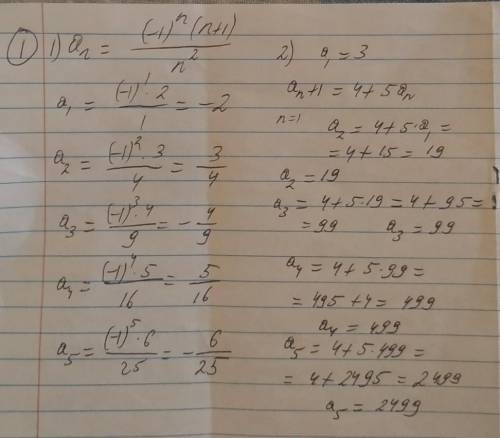 ① 1) aₙ = (-1)ⁿ(n+1) / n²
a₁ = (-1)¹·2 / 1 = -2
a₂ = (-1)²·3 / 4 = 3/4
a₃ = (-1)³·4 / 9 = -4/9
a₄ = (-1)⁴·5 / 16 = 5/16
a₅ = (-1)⁵·6 / 25 = -6/25
2) a₁ = 3
aₙ+1 = 4+5aₙ
n=1 a₂ = 4+5·a₁ =
= 4+15 = 19
a₂ = 19
a₃ = 4+5·19 = 4+95 =
= 99 a₃ = 99
a₄ = 4+5·99 =
= 495+4 = 499
a₄ = 499
a₅ = 4+5·499 =
= 4+2495 = 2499
a₅ = 2499